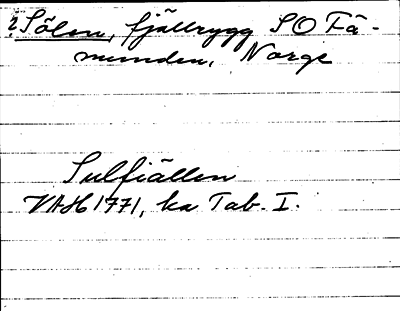 ?Sölen, fjällrygg SO Fä-
munden, Norge
Sulfiällen
VAH 1771, ka Tab. I.